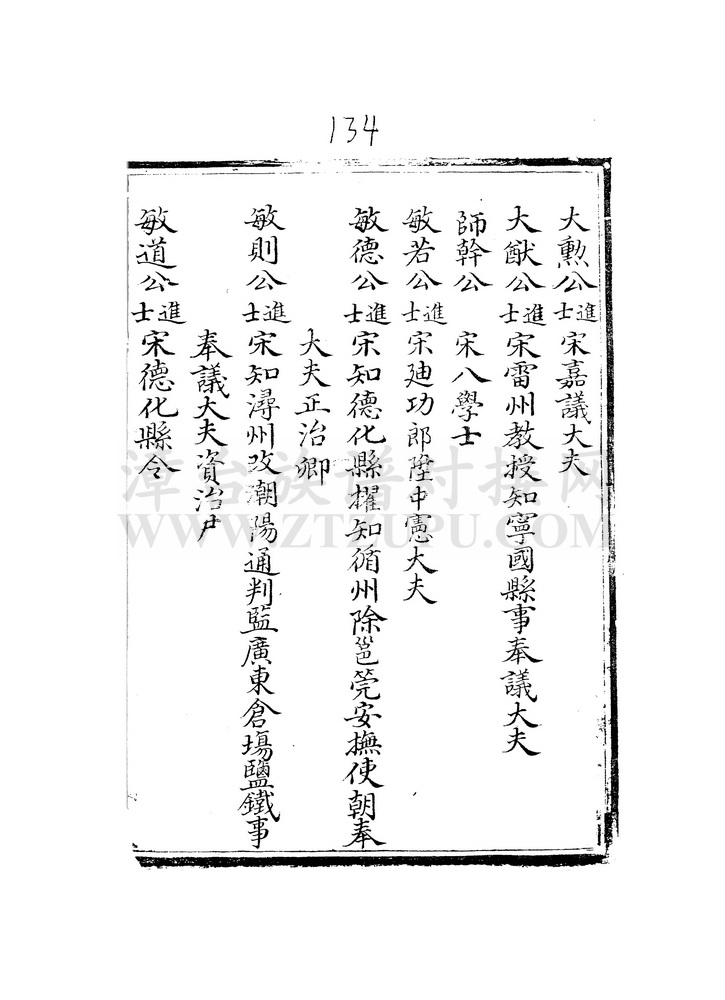 134
大勲公進士宋嘉議大夫
大猷公進士宋雷州教授知寧國縣事奉議大夫
師幹公　宋八學士
敏若公進士宋廸功郎陞中憲大夫
敏德公進士宋知德化縣擢知循州除邕筦安撫使朝奉
大夫正治卿
敏則公進士宋知潯州改潮陽通判監廣東倉塲鹽鐵事
奉議大夫資治尹
敏道公進士宋德化縣令
漳台族谱对接网
WWW.ZTZUPU.COM